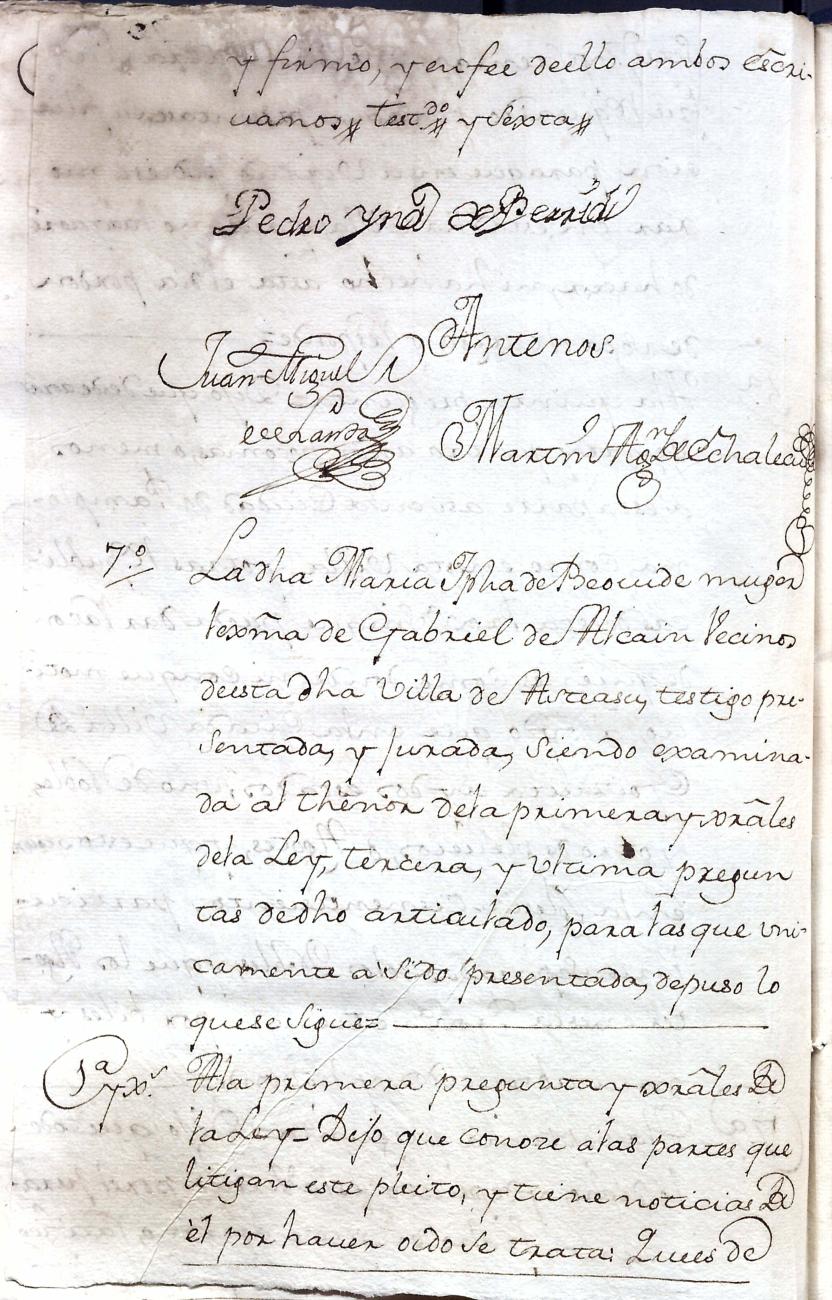 y firmo, y en fee de ello ambos escri-
vanos, test.do y Sexta
Pedro Yn.o de Berridi
Antenos
Juan Miguel
Martin de Echalecu
7.º La dha Maria Jpha de Beovide muger
lexma de Gabriel de Alcain Vecinos
de esta dha Villa de Asteasu, testigo pre-
sentada, y Jurada, siendo examina-
da al thenor dela primera y xrãles
dela Ley, tercera, y ultima pregun
tas de dho articulado, para las que uni-
camente a Sido presentada, depuso lo
que se Sigue =
1ª y xs. Ala primera pregunta y xrãles de
la Ley = Dijo que conoze álas partes que
litigan este pleito, y tiene noticias de
èl por haver oido se trata: Que es de